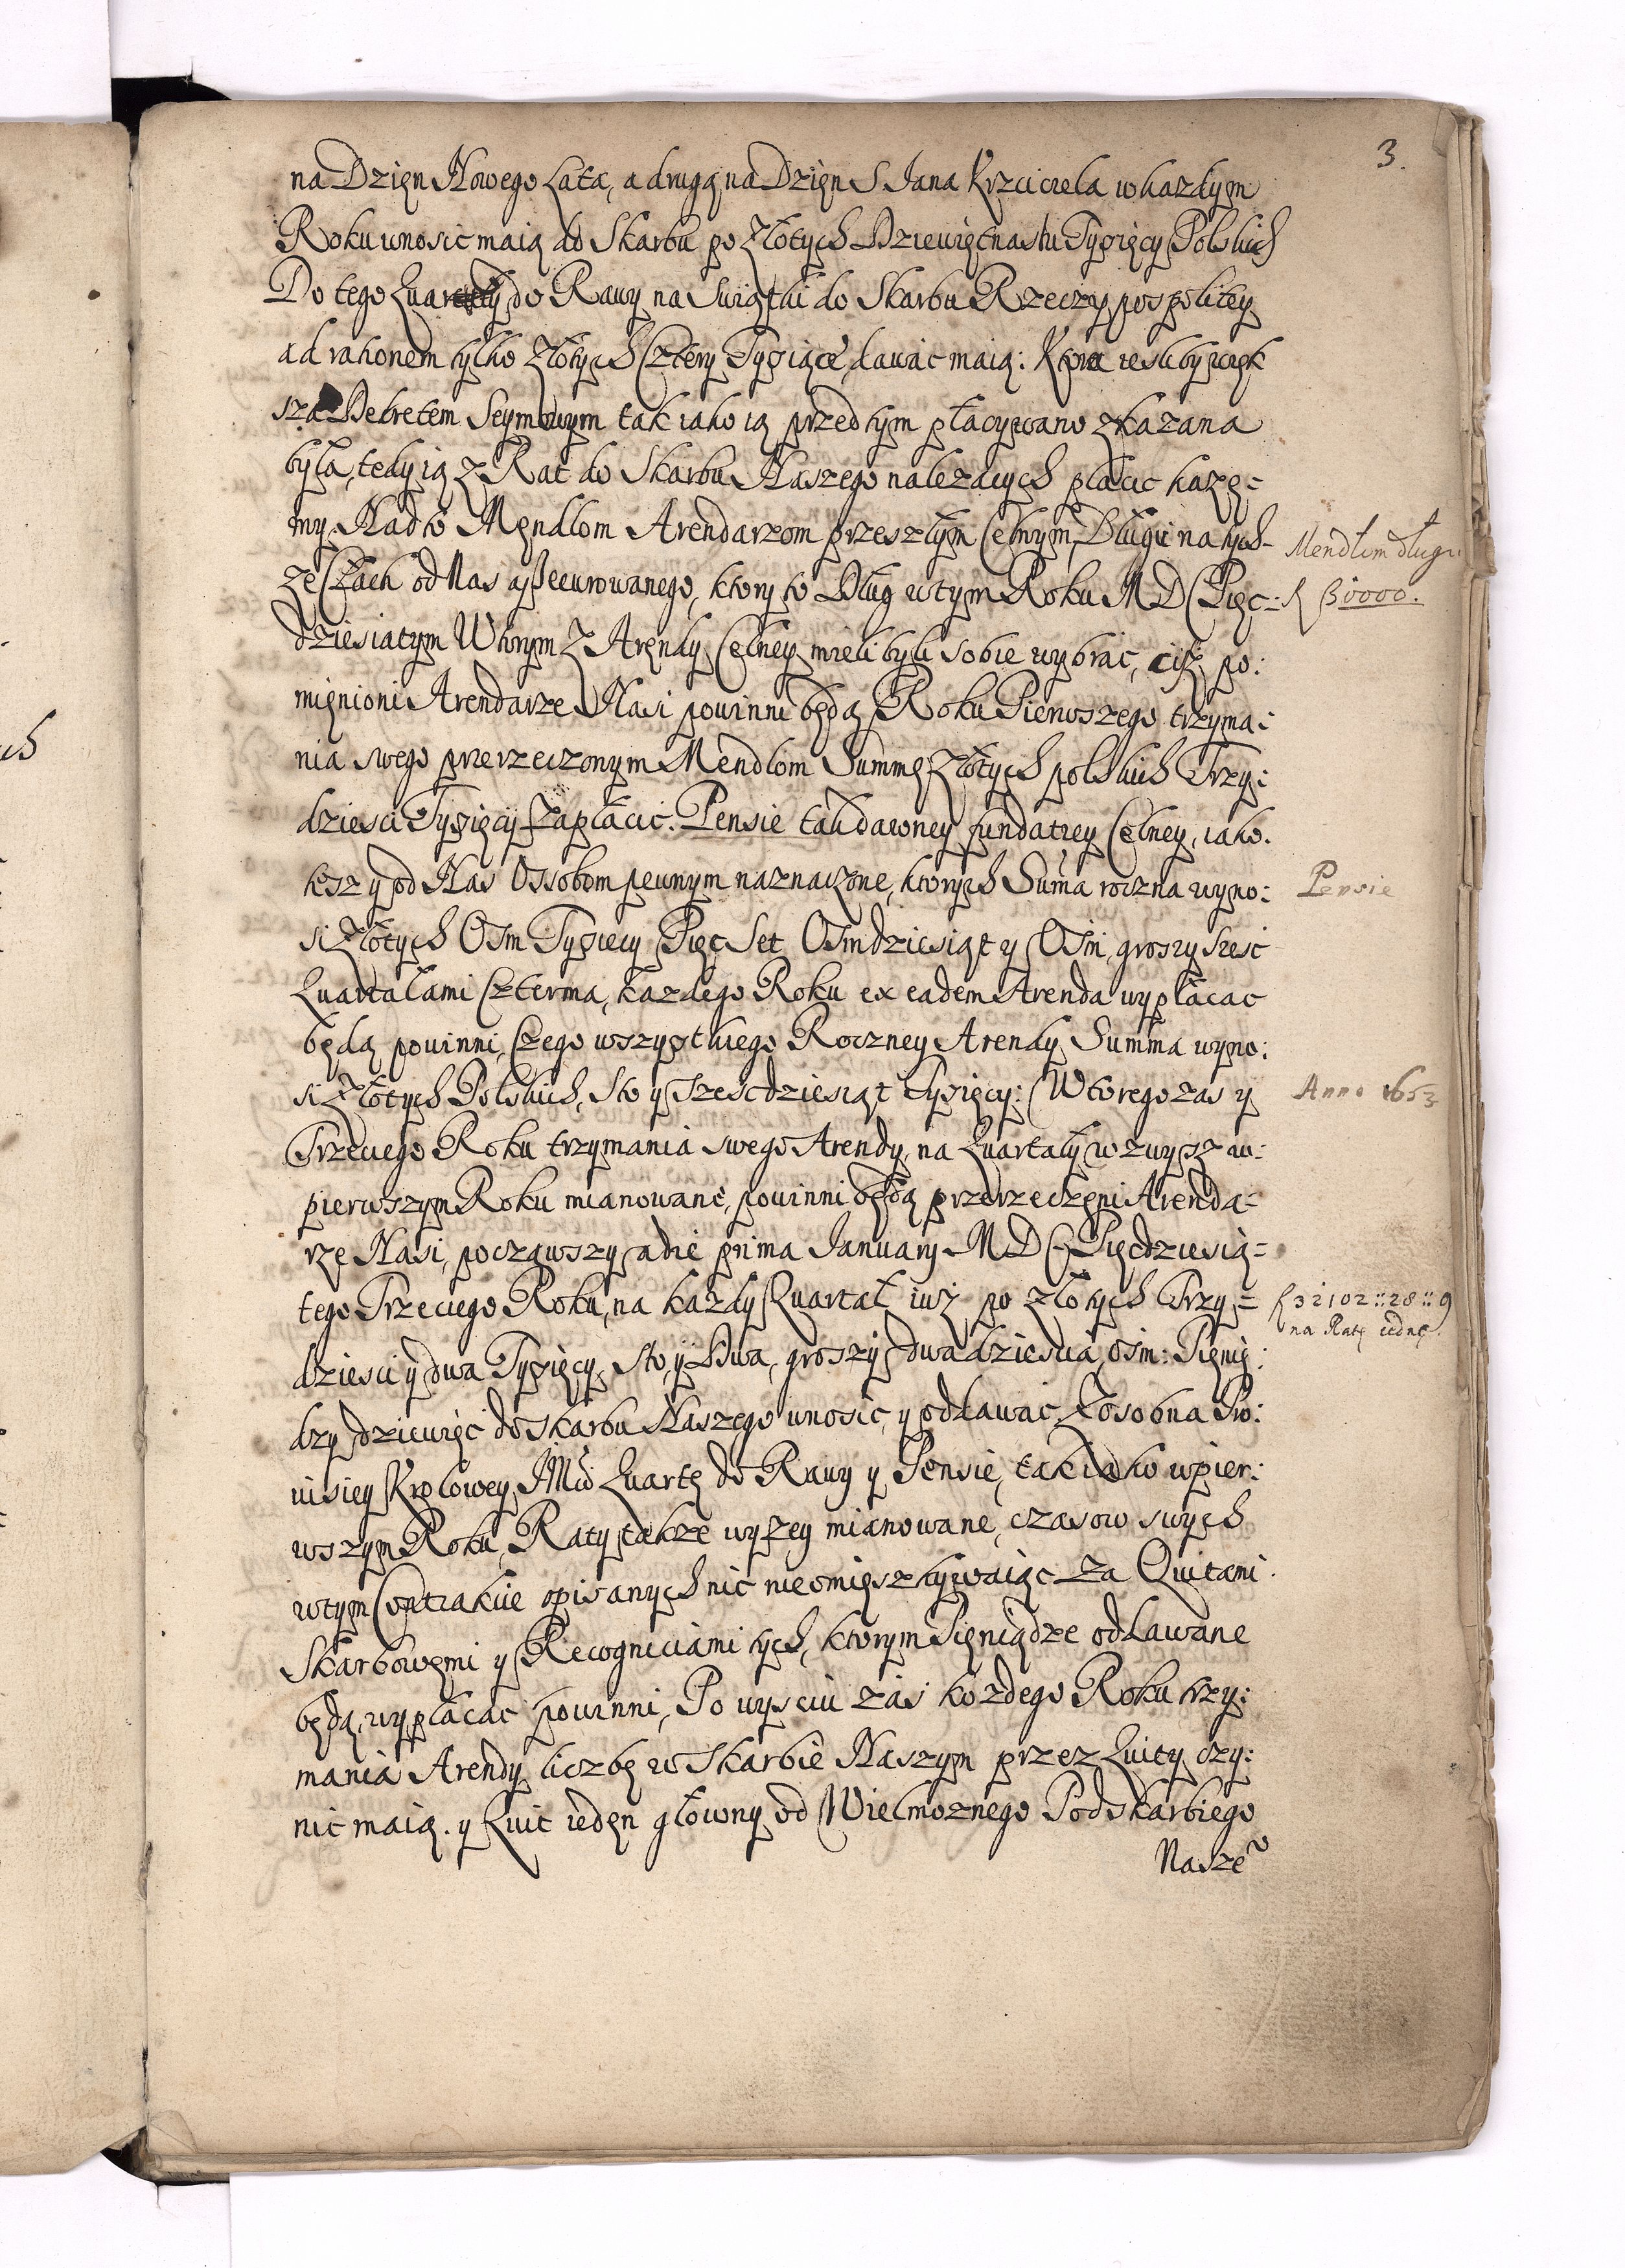 3.
na Dzien Nowego Lata, a drugą na Dzien S Jana Krzciciela w kazdym
Roku wnosic maią do Skarbu po złotych Dziewiętnastu Tysięcy Polskich
Do tego do Rawy na Swiątki do Skarbu Rzeczypospolitey
ad rationem tylko złotych Cztery Tysiące dawac maią: Ktora iesliby więk
sza Dekretem Seymowym tak iako ią przedtym płacywano zkazana
była, tedy ią z Rat do Skarbu Naszego nalezących płacic kaze=
my. Nad to Mendlom Arendarzom przeszłym Celnym, Długu na tych=
ze Cłach od Nas assecurowanego, ktory to Dług w tym Roku MDC Pięc:
dziesiatym Wtorym z Arendy Celney mieli byli sobie wybrac, ciż po:
mienioni Arendarze Nasi powinni będą Roku Pierwszego trzyma:
nia swego przerzeczonym Mendlom Summę złotych polskich Trzy:
dziesci Tysięcy zapłacic. Pensie tak dawney fundatiey Celney, iako.
tesz y od Nas Ossobom pewnym naznaczone, ktorych Suma roczna wyno:
si złotych Osm Tysięcy Pięc Set Osmdziesiąt y Osm, groszy szesc
Quartałami Czterma, kazdego Roku ex eadem Arenda wypłacac
będą powinni, Czego wszystkiego Roczney Arendy Summa wyno:
si złotych Polskich, Sto y szescdziesiąt Tysięcy: Wtorego zas y
Trzeciego Roku trzymania swego Arendy, na Quartały wzwysz w=
pierwszym Roku mianowane, powinni będą przerzeczeni Arenda=
rze Nasi, począwszy a die prima January MDC Pięcdziesią=
tego Trzeciego Roku, na kazdy Quartał iuż po złotych Trzy=
dziesci y dwa Tysięcy, Sto, y Dwa, groszy dwadziescia osm: Pienię:
dzy dziewięc do skarbu Naszego wnosic, y oddawac, Zosobna Pro:
uisiey Krolowey JMci Quartę do Rawy y Pensie, tak iako w pier:
wszym Roku, Raty takze wyzey mianowane, czasow swych
w tym Contrakcie opisanych nic nieomięszkywaiąc za Quitami
Skarbowemi y Recogniciami tych, ktorym Pieniądze oddawane
będą, wypłacac powinni, Po wysciu zas kozdego Roku trzy:
mania Arendy liczbę w Skarbie Naszym przez Quity czy:
nic maią. y Quit ieden głowny od Wielmoznego Podskarbiego
Naszeo
Mendlom długu
f 30000.
Pensie
Anno 1653
f 32102::28::9
na Ratę iednę.